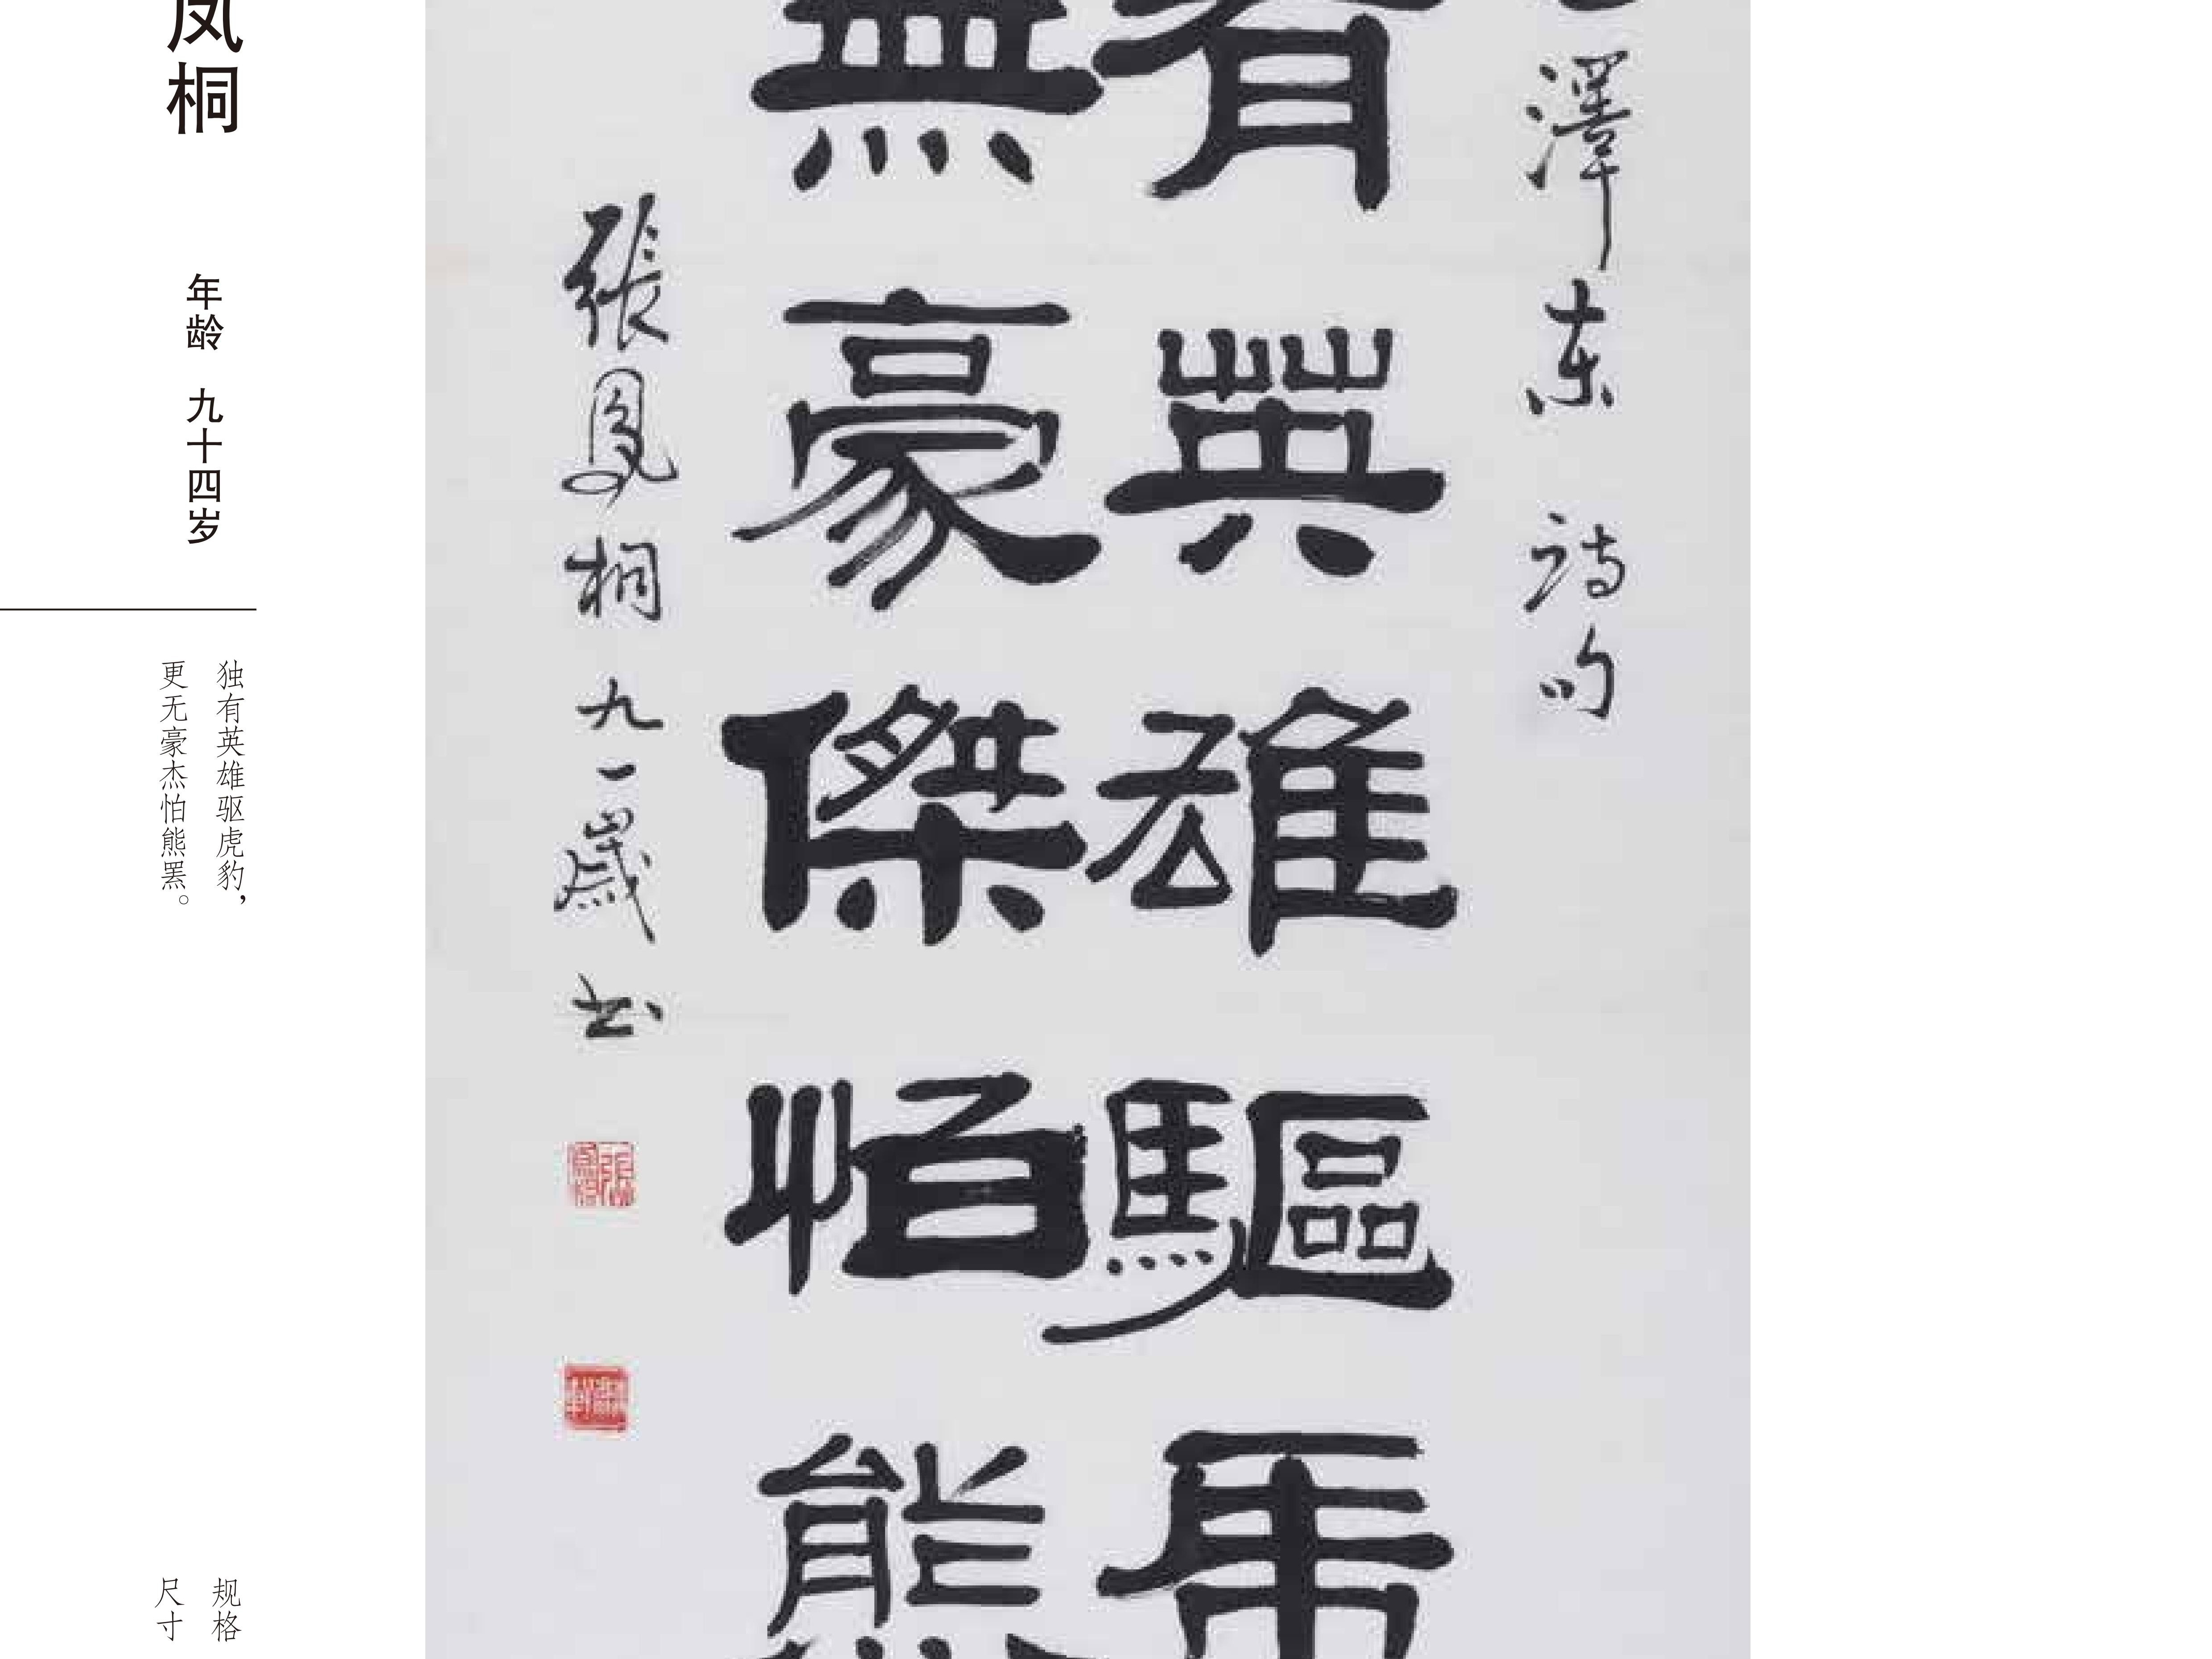 澤东 诗句
有英雄驅虎
無豪傑怕熊
張鳳桐九一歲书
凤桐
年龄 九十四岁
独有英雄驱虎豹，
更无豪杰怕熊罴。
规格
尺寸